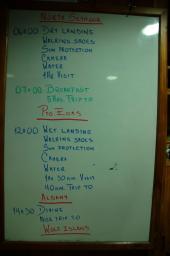 NORTH SEYMOUR
06:00 DRY LANDING
WALKING SHOES
SUN PROTECTION
CAMERA
WATER
1HR VISIT
07:00 BREAKFAST
TRIP TO
12:00 WET LANDING
WALKING SHOES
SUN PROTECTION
CAMERA
WATER
1HR 30MIN VISIT
40MIN TRIP TO
ALBANY
14:30 DIVING
TRIP TO
WOLF ISLAND